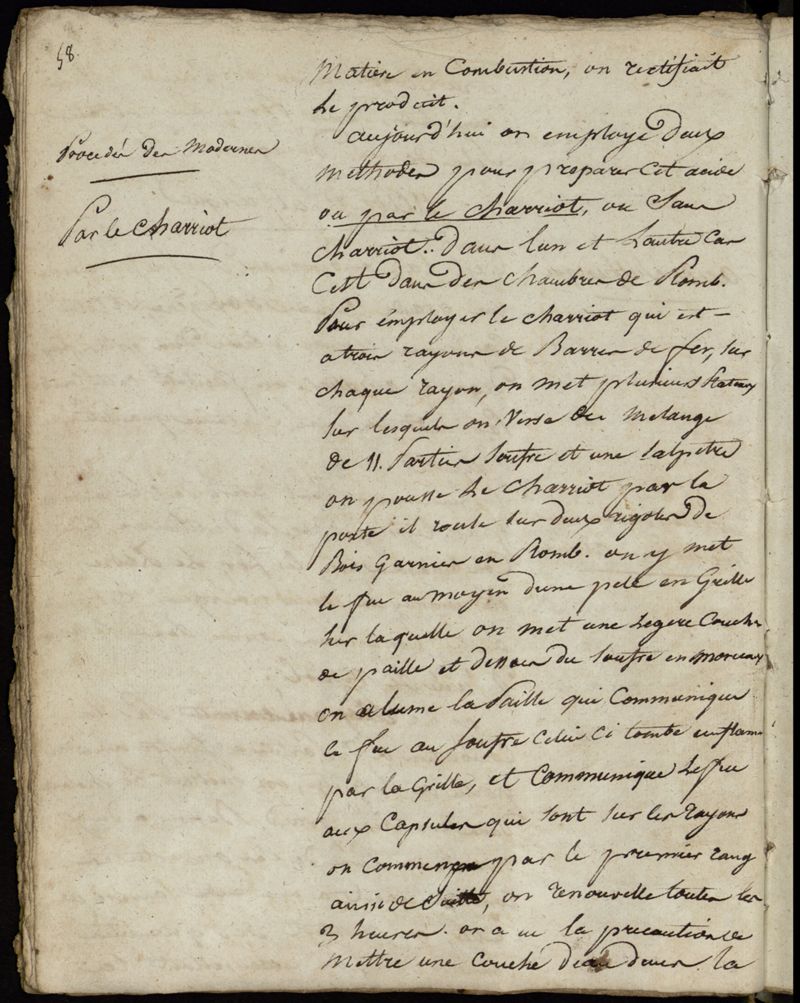 58.
Procedés des Modernes
Par le Charriot
Matiere en Combustion, on rectifiait
Le produit.
aujourd'hui on employe Deux
methodes pour preparer Cet acide
ou par le charriot, ou Sans
charriot. Dans lun et Lautre Cas
Cest Dans Des Chambres de Plomb.
Pour employer le charriot qui est
a trois rayons de Barres de fer, sur
chaque rayon, on met plusieurs Plateaux
sur lesquels on Verse du melange
de 11. Parties soufre et une salpetre
on pousse Le Charriot par la
porte il roule sur deux rigoles De
Bois Garnies en Plomb. on y met
le feu au moyen dune pele en Grille
sur laquelle on met une Legere Couche
de paille et dessus du soufre en morceaux
on alume la Paille qui Communique
le feu au soufre Celui Ci tombe enflamé
par la Grille, et Communique Le feu
aux Capsules qui sont sur les rayons
on Commence par le premier rang
ainsi de Suitte, on renouvelle toutes les
3 heures. on a eu la precaution de
mettre une couche Deau dans la